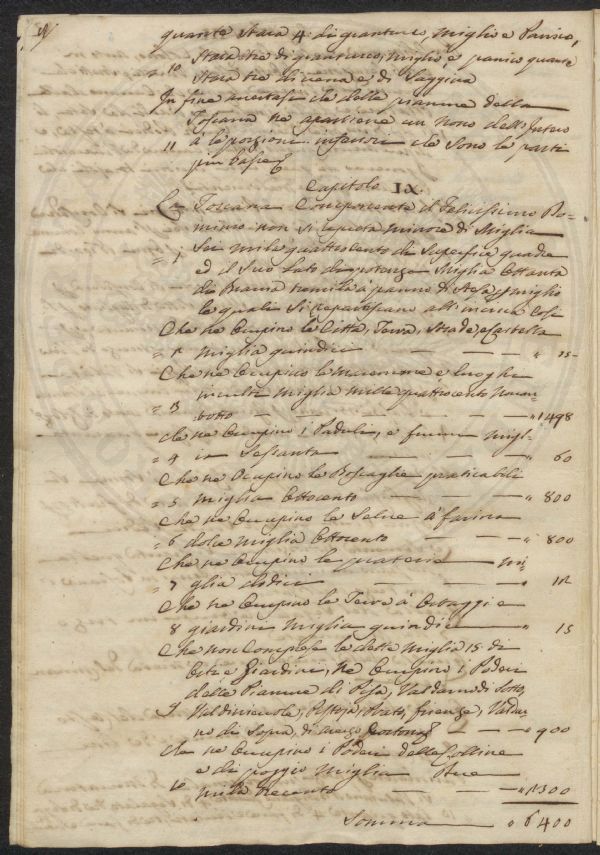 quante Staia 4 di granturco, Miglio e Panico,
" 10 Staia tre di granturco, miglio, e panico quante
Staia tre di vena e di Saggina
In fine avertasi che delle pianure della
Toscana ne apartiene un Nono dell'Intero
11 a le porzioni inferiori che Sono le parti
piu basse
Capitolo IX.
La Toscana Componente il Felicissimo Do-
minio non si reputa minore di Miglia
" 1 Sei mila quattrocento di Superfice quadre
ed il Suo lato di potenza Miglia Ottanta
di Braccia tremila a panno
le quali Si repartiscano all'incirca Così
Che ne Occupino le Città, Terre, Strade, e Castella
" 2 Miglia quindici — — — " 15
Che ne Occupino le Maremme e luoghi
inculti Miglia Mille quattrocento Novan
" 3 totto — — — — " 1498
Che ne Occupino i Paduli, e fiumi Migl-
" 4 ia Sessanta — — — " 60
Che ne Ocupino le Boscaglie praticabili
" 5 Miglia Ottocento — — — " 800
Che ne Occupino le Selve a farina
" 6 dolce Miglia Ottocento — — — " 800
Che ne Occupino le praterie Mi-
" 7 glia dodici — — — " 12
Che ne Occupino le Terre a Ortaggi e
8 giardini Miglia quindici — — " 15
Che non Comprese le dette Miglia 15 di
Orti e Giardini, Ne Occupino i Poderi
delle Pianure di Pisa, Valdarno di Sotto,
9 Valdinievole, Pistoja, Prato, firenze, Valdar
no di Sopra, di Arezzo Cortona — " 900
Che ne Occupino i Poderi delle Colline
e di poggio Miglia Due
10 mila trecento — — — " 2300
Somma — " 6400